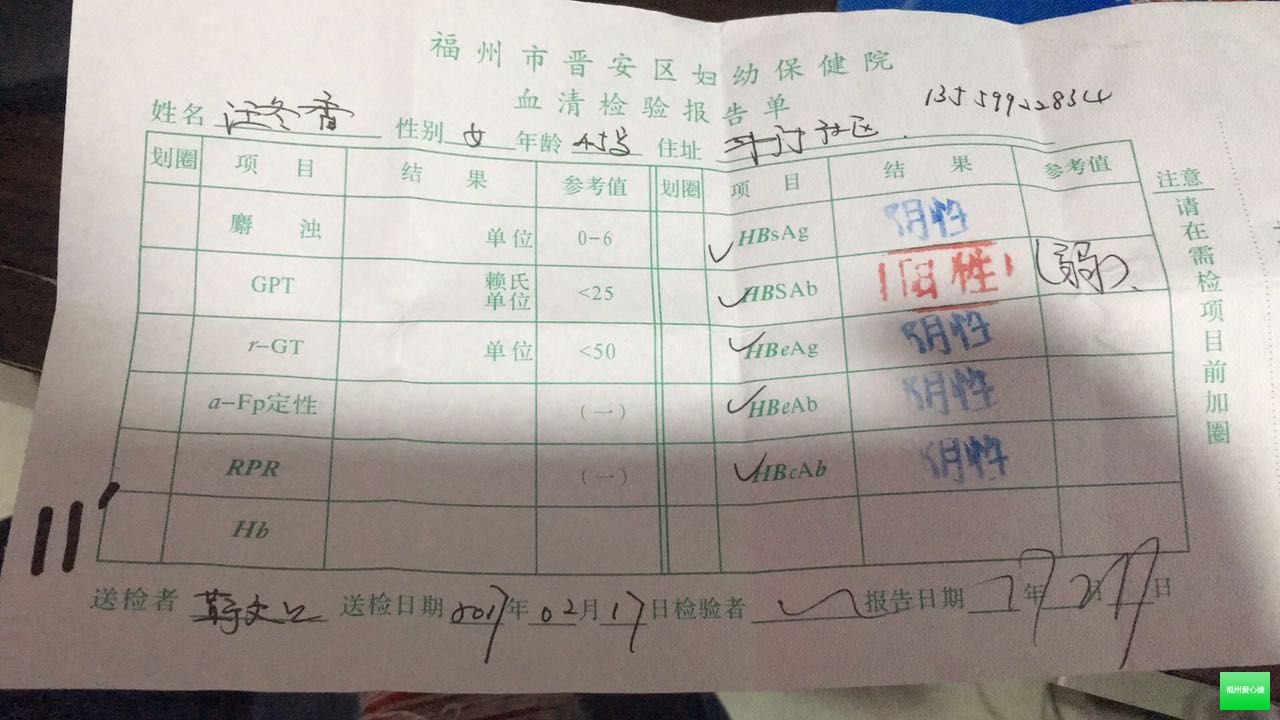 福州市晋安区妇幼保健院
血清检验报告单
姓名 汪冬香 性别 女 年龄 住址 社区
划圈 项目 结果 参考值 划圈 项目 结果 参考值
麝浊 单位 0-6 HBsAg 阴性
GPT 赖氏单位 <25 HBSAb 阳性 (弱)
r-GT 单位 <50 HBeAg 阴性
a-Fp定性 (一) HBeAb 阴性
RPR (一) HBcAb 阴性
Hb
注意 请在需检项目前加圈
送检者 送检日期 2017年02月17日 检验者 报告日期 17年2月17日
福州爱心嫂